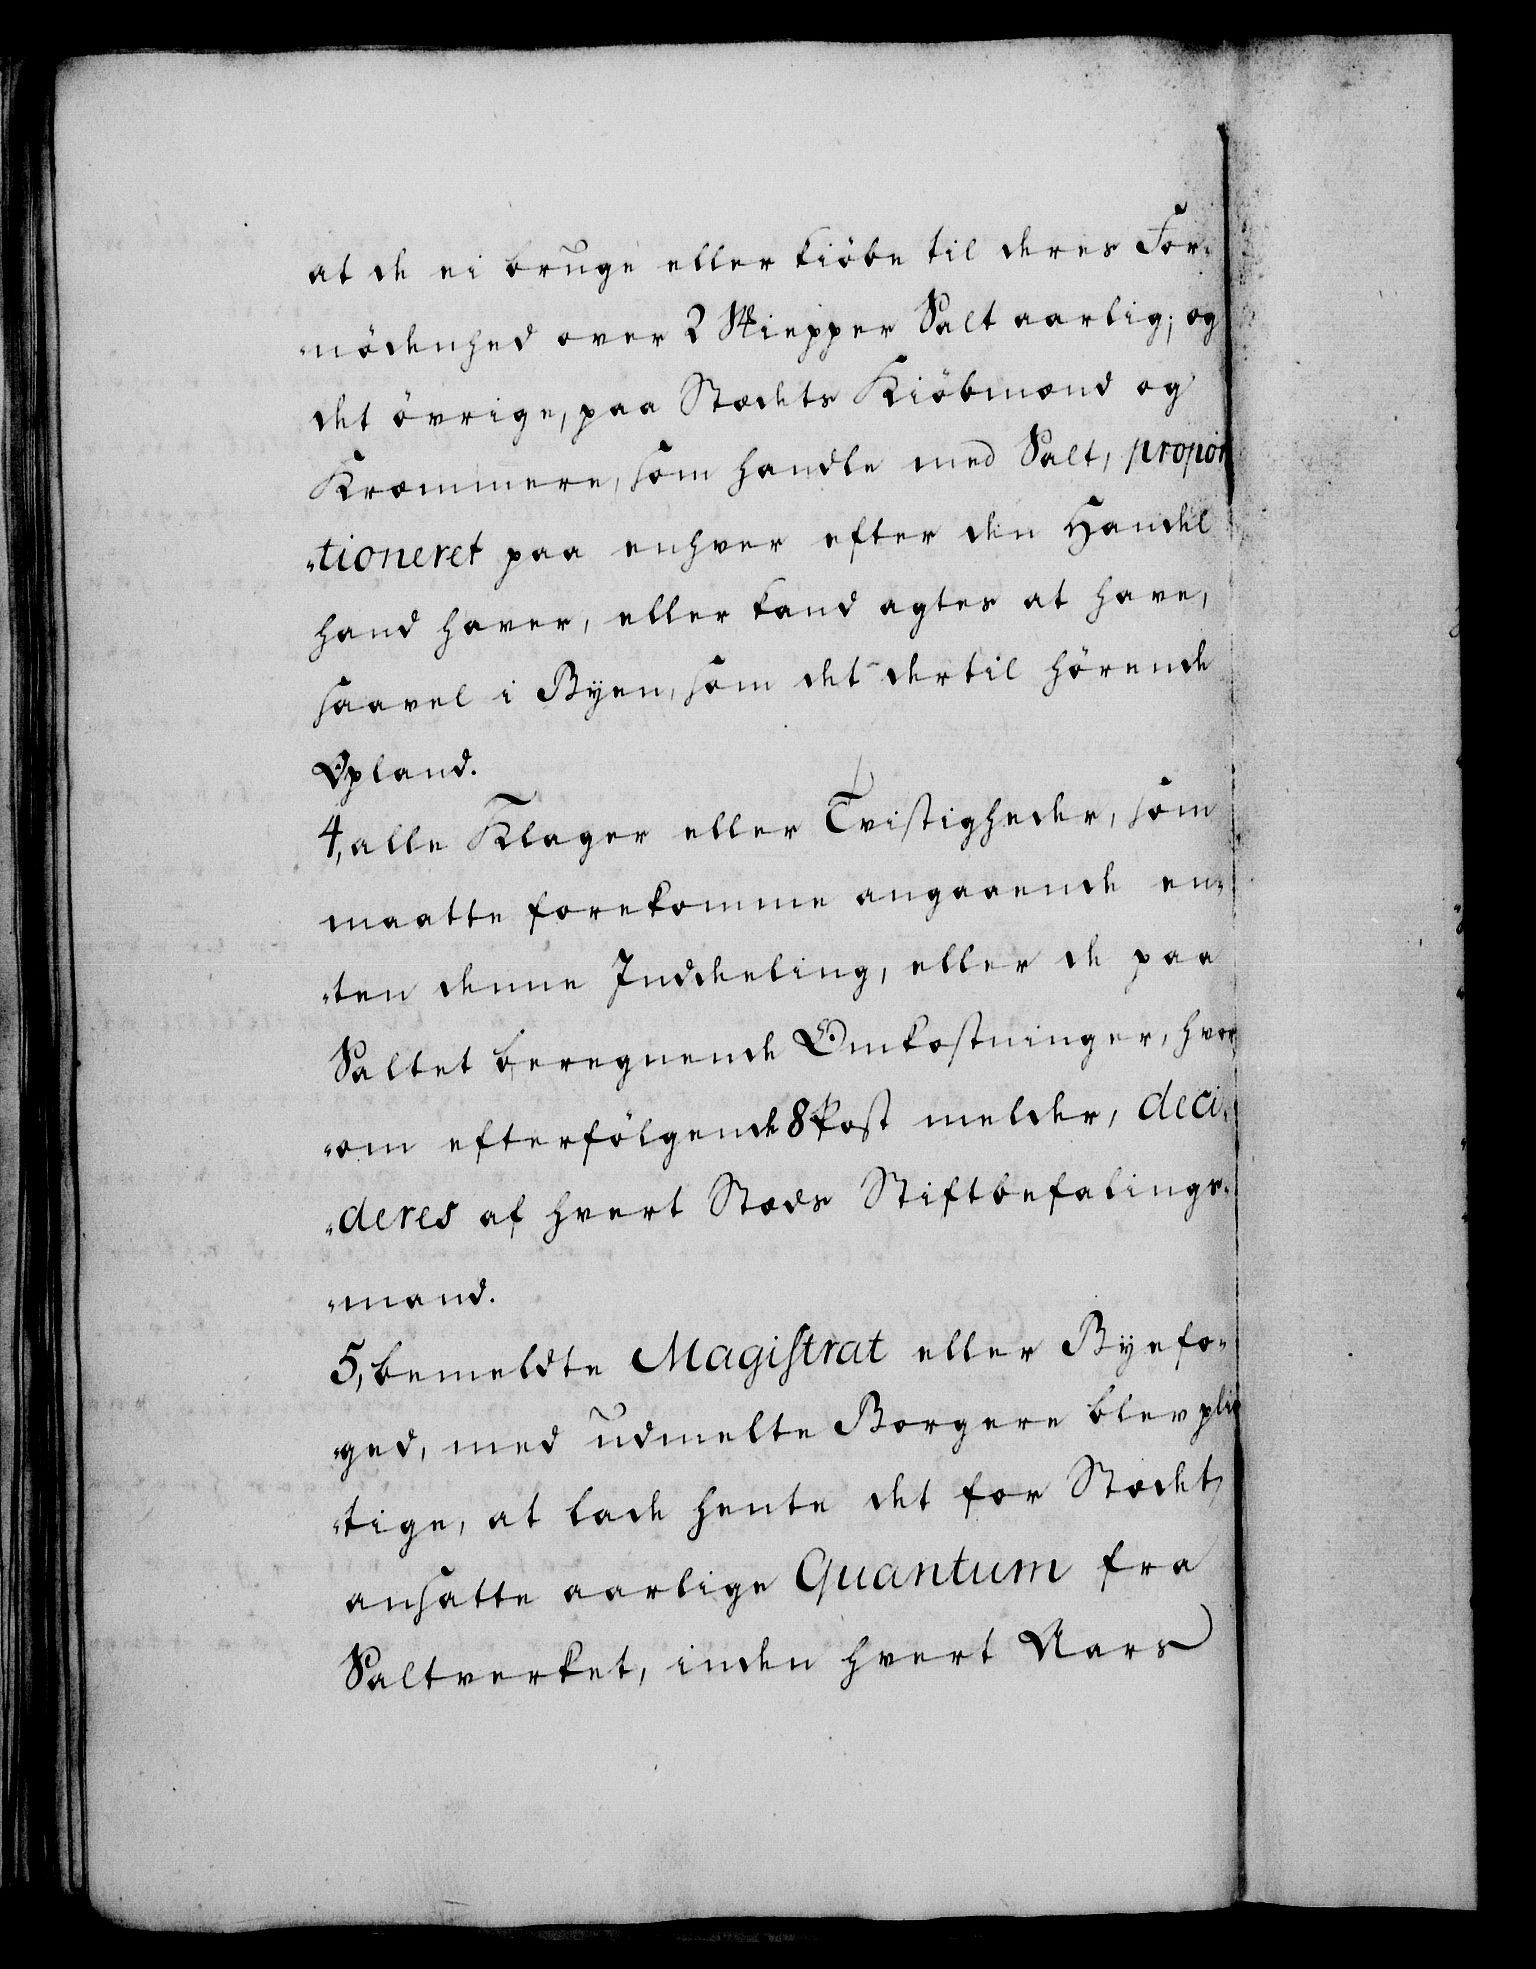 at de ei bruge eller kiöbe til deres For-
-nödenhed over 2 Skiepper Salt aarlig; og
det övrige, paa Stædets Kiöbmænd og
Kræmmere, som handle med Salt, propor
-tioneret paa enhver efter den Handel
hand haver, eller kand agtes at have,
saavel i Byen, som det dertil hörende
Opland.
4, alle Klager eller Tvistigheder, som
maatte forekomme angaaende en-
-ten denne Inddeeling, eller de paa
Saltet beregnende Omkostninger, hvor
-om efterfölgende 8 Post melder, deci-
-deres af hvert Stæds Stiftbefalings-
-mand.
5, bemeldte Magistrat eller Byefo-
-ged, med udmelte Borgere blev plig
-tige, at lade hente det for Stædet
ansatte aarlige Quantum fra
Saltverket, inden hvert Aars